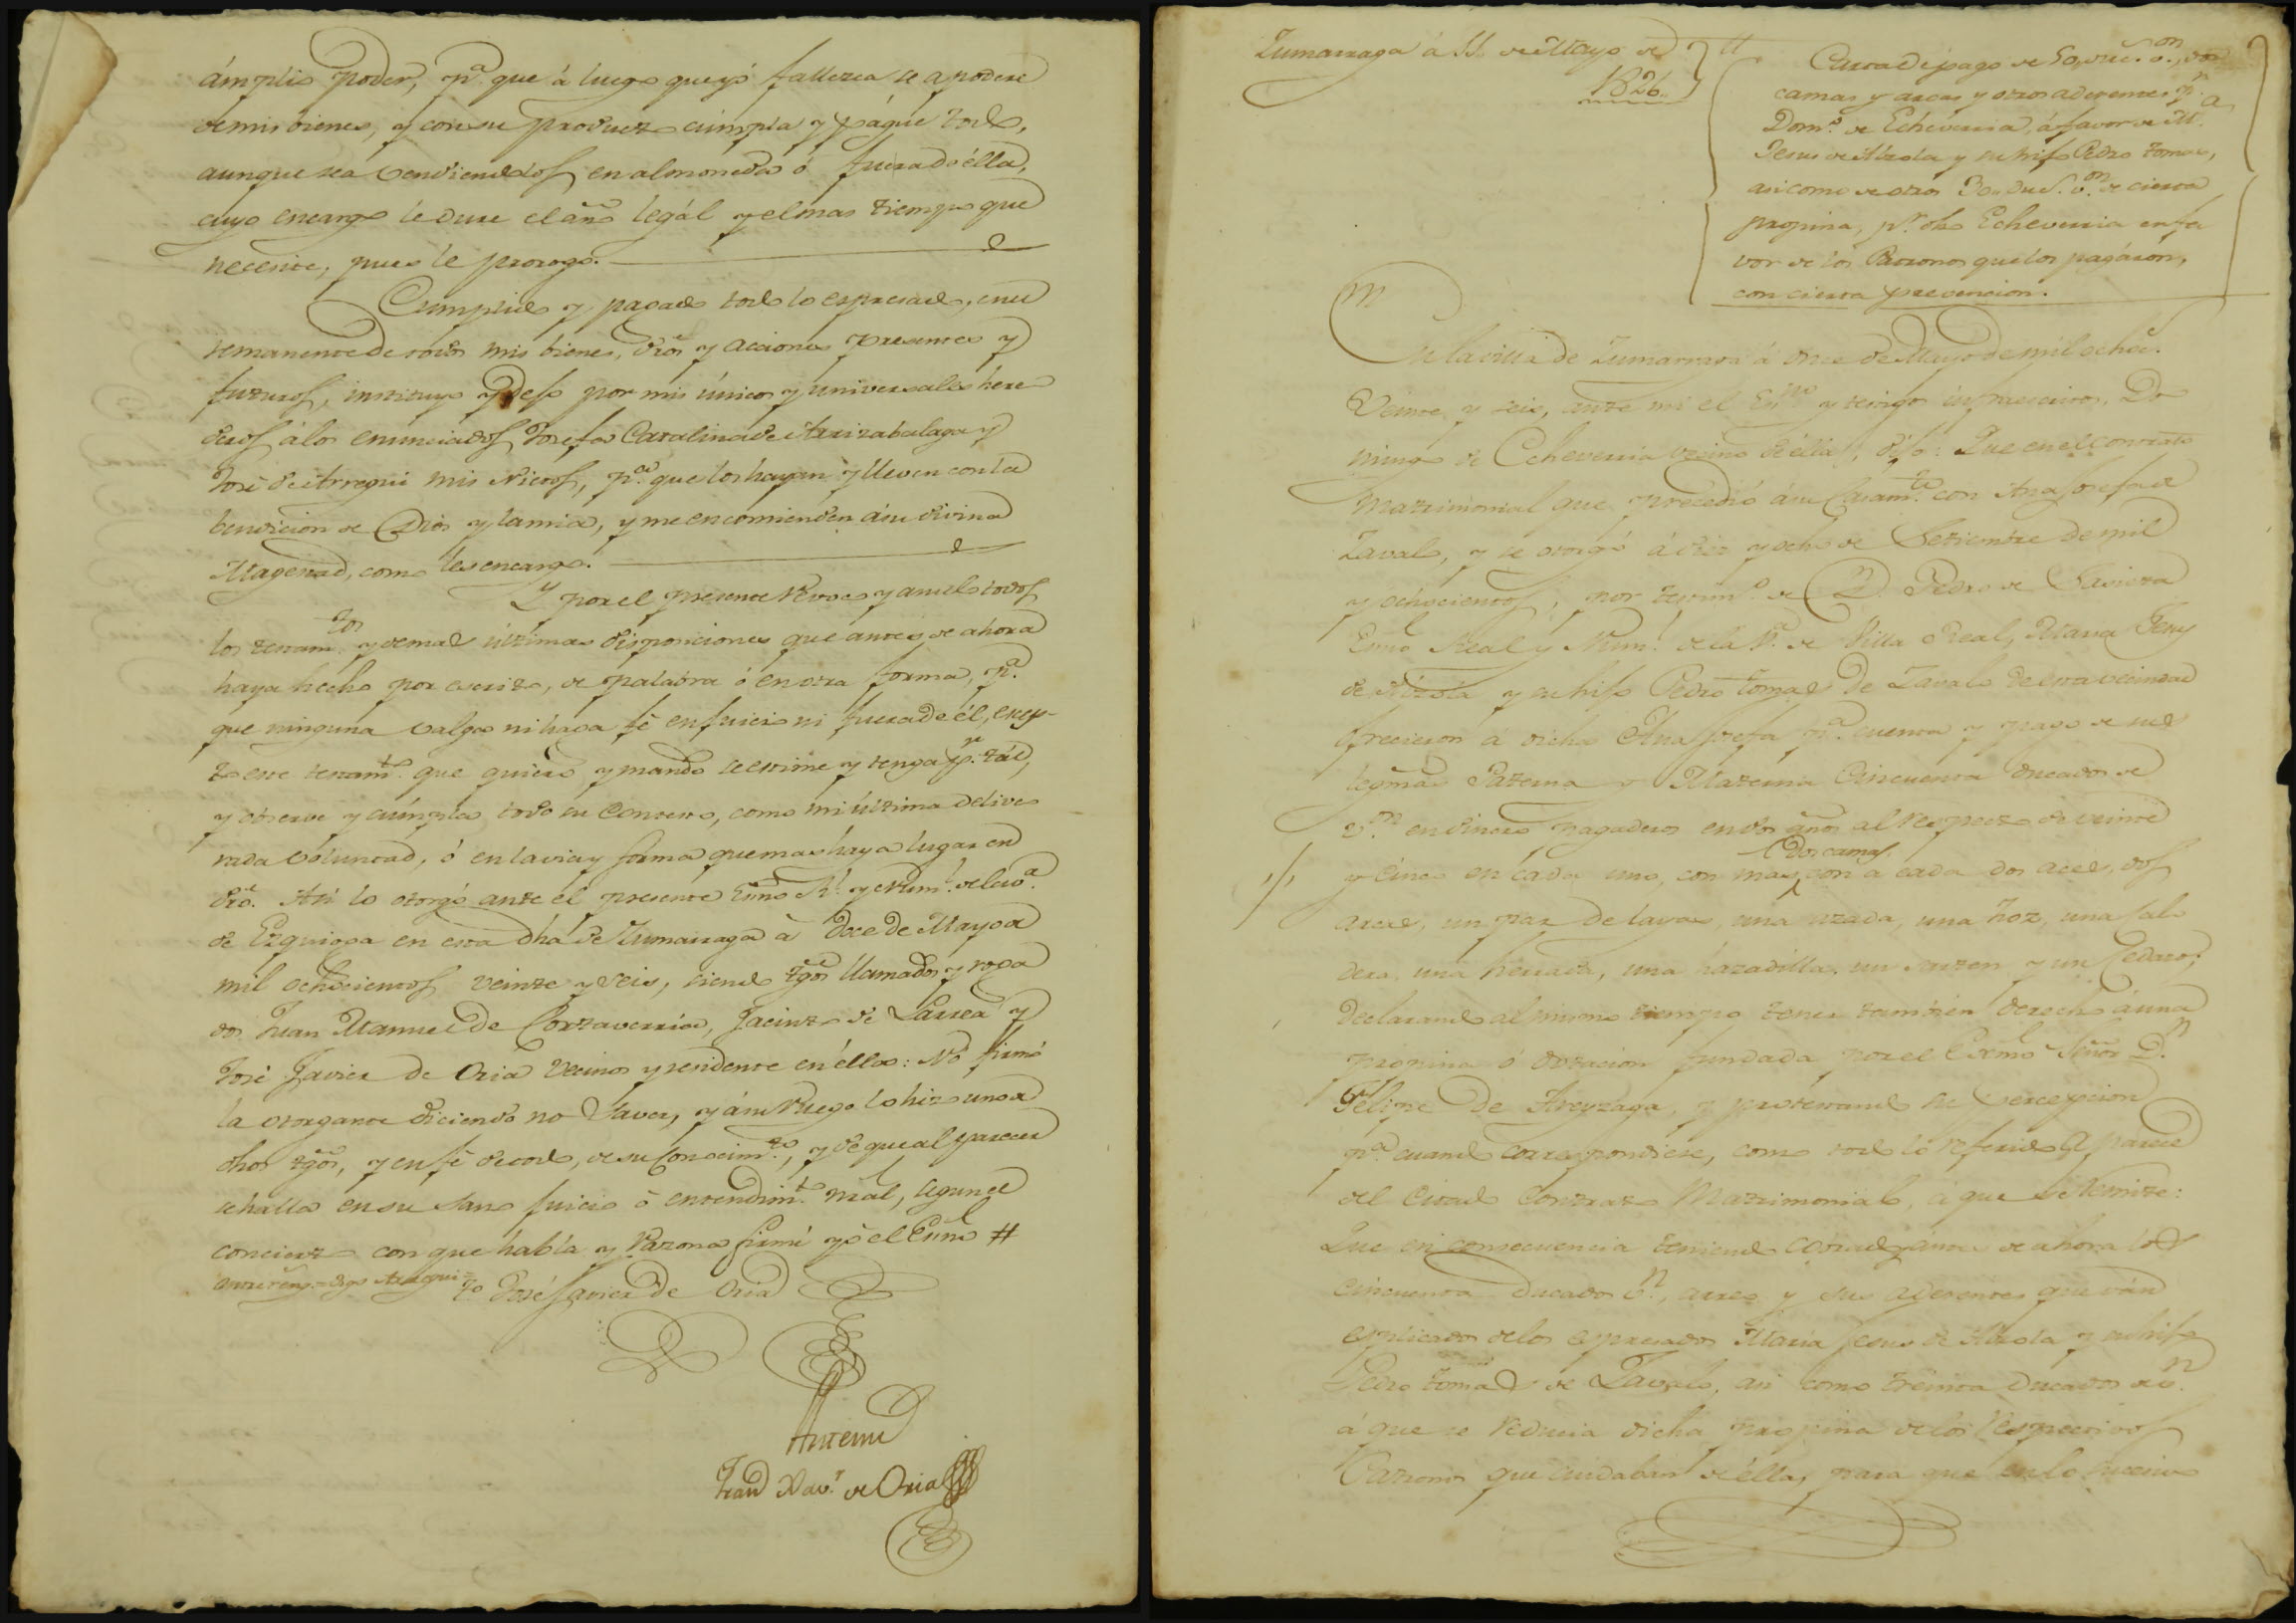 ámplio poder, p.ª que á luego que yó fallezca se apodere
de mis bienes, y con su producto cúmpla y págue todo,
aunque sea vendiendolos en almoneda ó fuera de élla,
cuyo encargo le dure el año legál y el mas tiempo que
necesite, pues le prorogo.
Cumplido y pagado todo lo espresado, en el
remanente de todos mis bienes, dros y acciones presentes y
futuros, instituyo y dejo por mis únicos y universales here
deros á los enunciados Josefa Catalina de Arrizabalaga y
José de Arregui mis Nietos, p.ª que los hayan y lleven con la
bendicion de Dios y la mia, y me encomienden á su divina
Magestad, como les encargo.
Y por el presente revoco y anulo todos
los testam.tos y demas últimas disposiciones que antes de ahora
haya hecho por escrito, de palabra ó en otra forma, p.ª
que ninguna valga ni haga fé en juicio ni fuera de él, excep-
to este testam.to que quiero y mando se estime y tenga p.r tál,
y observe y cúmpla todo su contesto, como mi última delive
rada voluntad, ó en la via y forma que mas haya lugar en
dro. Asi lo otorgó ante el presente Esno R.l y Num.l de la v.ª
de Ezquioga en esta dha de Zumarraga à doce de Mayo de
mil ochocientos veinte y seis, siendo tgos llamados y roga
dos Juan Manuel de Cortaverria, Jacinto de Larrea y
José Javier de Oria vecinos y residente en élla: No firmó
la otorgante diciendo no saver, y á su ruego lo hizo uno de
dhos tgos, y en fé de todo, de su conocim.to, y de que al parecer
se halla en su sano juicio ó entendim.to nrál, segun el
concierto con que habla y razona firmé yó el Esno #
entre reng.s = dhos Arregui =
t.o José Javier de Oria
Antemi
Fran.co Xav.r de Oria
Zumarraga á 11. de Mayo de
1826.
Carta de pago de 50, duc.s v.on, dos
camas y arcas y otros aderentes p.r
Dom.o de Echeverria, á favor de M.a
Jesus de Alzola y su hijo Pedro Tomas,
asi como de otros 30, duc.s v.on de cierta
propina, p.r dho Echeverria en fa
vor de los Patronos que los pagáron,
con cierta prevencion.
En la villa de Zumarraga á once de Mayo de mil ochoc.s
Veinte y seis, ante mi el Esno y testigos infrascritos, Do
mingo de Echeverria vecino de élla, dijo: Que en el contrato
Matrimonial que precedió á su Casam.to con Ana Josefa de
Zavalo, y se otorgó á diez y ocho de Setiembre de mil
y ochocientos, por testim.o de D.n Pedro de
Esno Real y Num.l de la V.ª de Villa Real, Maria Jesus
de Alzola y su hijo Pedro Tomas de Zavalo de esta vecindad
ofrecieron á dicha Ana Josefa p.ª cuenta y pago de sus
legmas Paterna y Materna Cincuenta ducados de
v.on en dinero pagaderos en dos años al respecto de veinte
dos camas
y cinco en cada uno, con mas, con a cada dos aced, dos
arcas, un par de layas, una azada, una hoz, una sala
dera, una herrada, una hazadilla, un sarten y un Cedazo;
Declarando al mismo tiempo tener tambien derecho á una
propina ó dotacion fundada por el Exmo Señor D.n
Felipe de Areyzaga, y protestando su percepcion
p.ª cuando correspondiese, como todo lo referido aparece
del citado Contrato Matrimonial, á que se remite:
Que en consecuencia teniendo cobrados ántes de ahora los
cincuenta ducados v.n, arreo y sus aderentes que ván
esplicados de los espresados Maria Jesus de Alzola y su hijo
Pedro Tomas de Zavalo, asi como treinta Ducados de v.n
á que se reducia dicha propina de los respectivos
Patronos que cuidaban de élla, para que en lo sucesivo